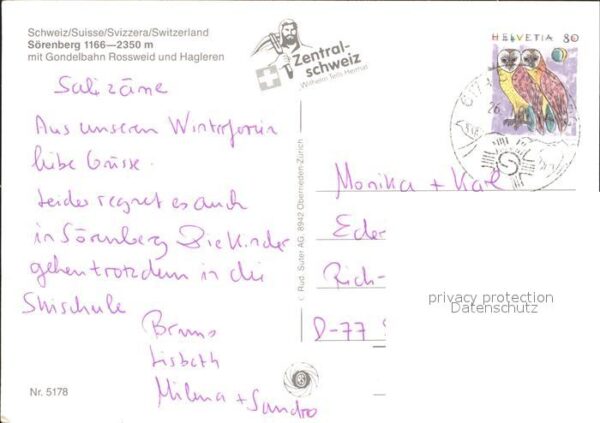 Schweiz/Suisse/Svizzera/Switzerland
Sörenberg 1166—2350 m
mit Gondelbahn Rossweid und Hagleren
Zentral-
schweiz
Wilhelm Tells Heimat
HELVETIA 80
Salizäme
Aus unseren Winterferien
liebe Grüsse.
Leider regnet es auch
in Sörenberg Die Kinder
gehen trotzdem in die
Skischule
Bruno
Lisbeth
Milena + Sandro
Nr. 5178
© Rud. Suter AG, 8942 Oberrieden-Zürich
Monika + Karl
Eder
Rich-
D-77
privacy protection
Datenschutz